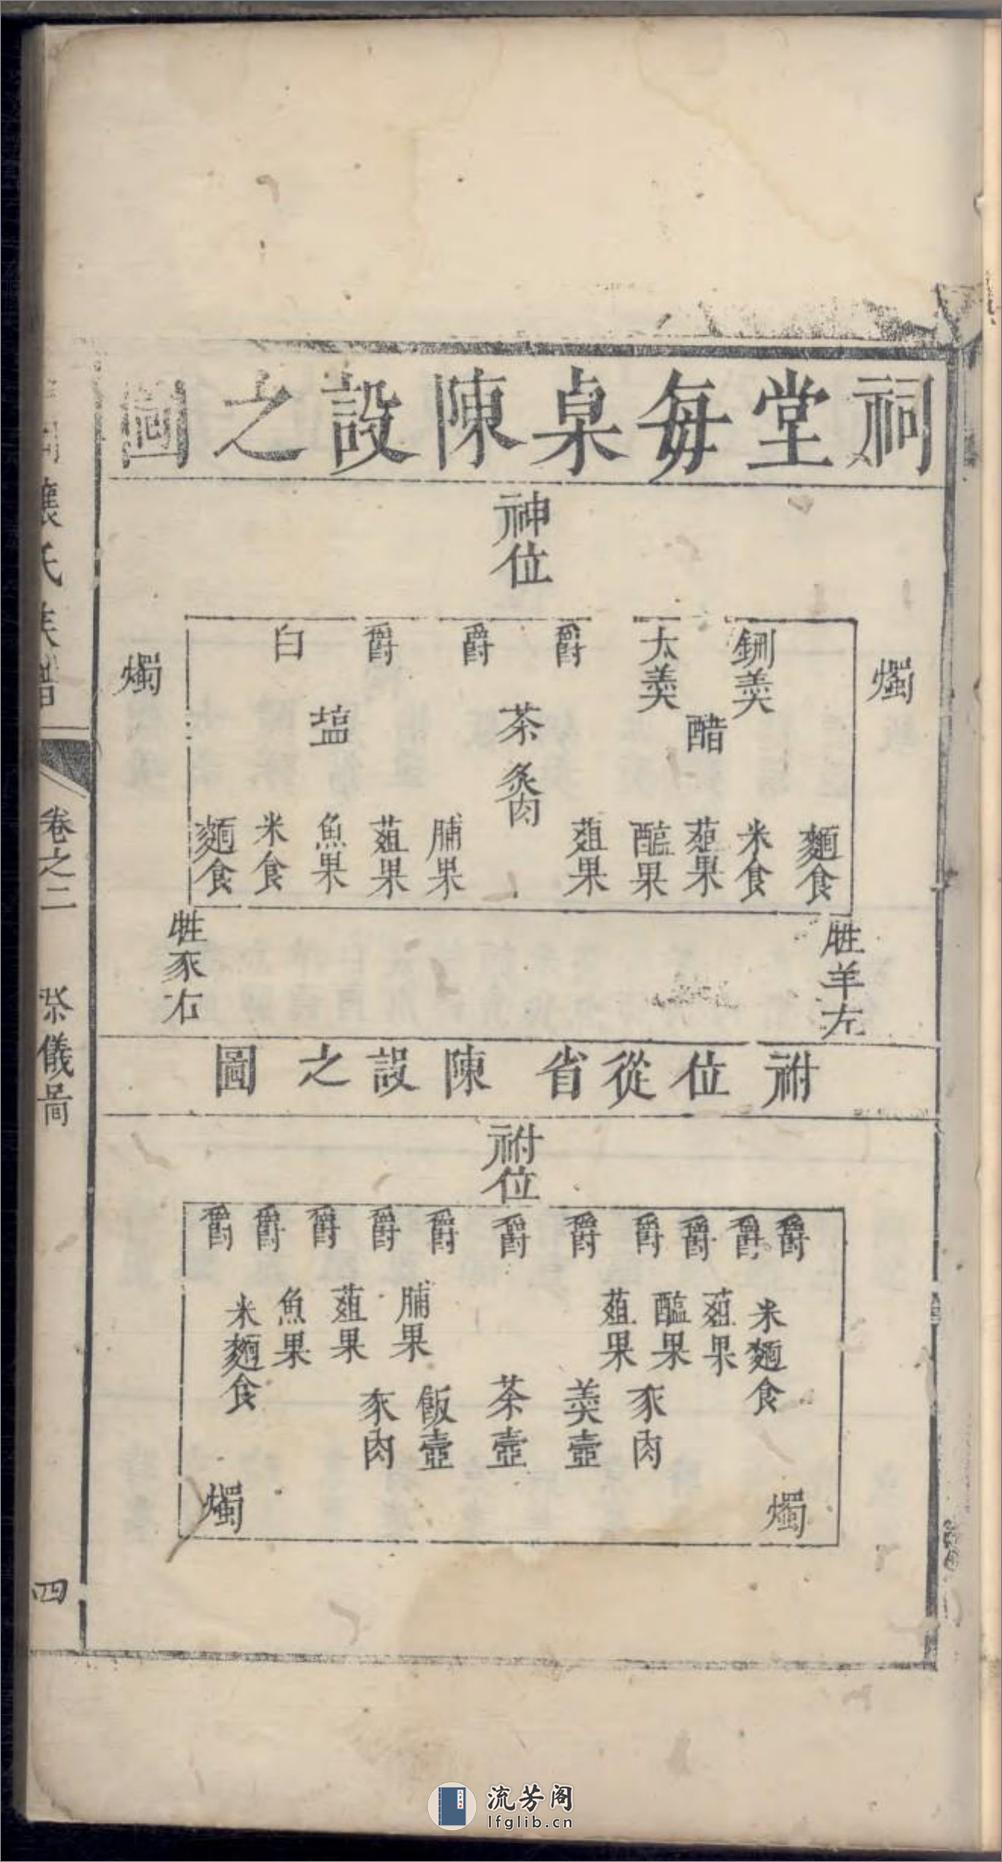 祠堂每桌陳設之圖
神位
燭
鉶羹
大羹
爵
爵
爵
白
燭
醋
茶
盐
炙肉
麵食
米食
葅果
醢果
葅果
脯果
葅果
魚果
米食
麵食
牲羊左
牲豕右
祔位從省陳設之圖
祔位
爵
爵
爵
爵
爵
爵
爵
爵
爵
爵
爵
米麵食
葅果
醢果
葅果
脯果
葅果
魚果
米麵食
豕肉
羹壺
茶壺
飯壺
豕肉
燭
燭
氏族譜
卷之二
祭儀啚
四
流芳阁
lfglib.cn